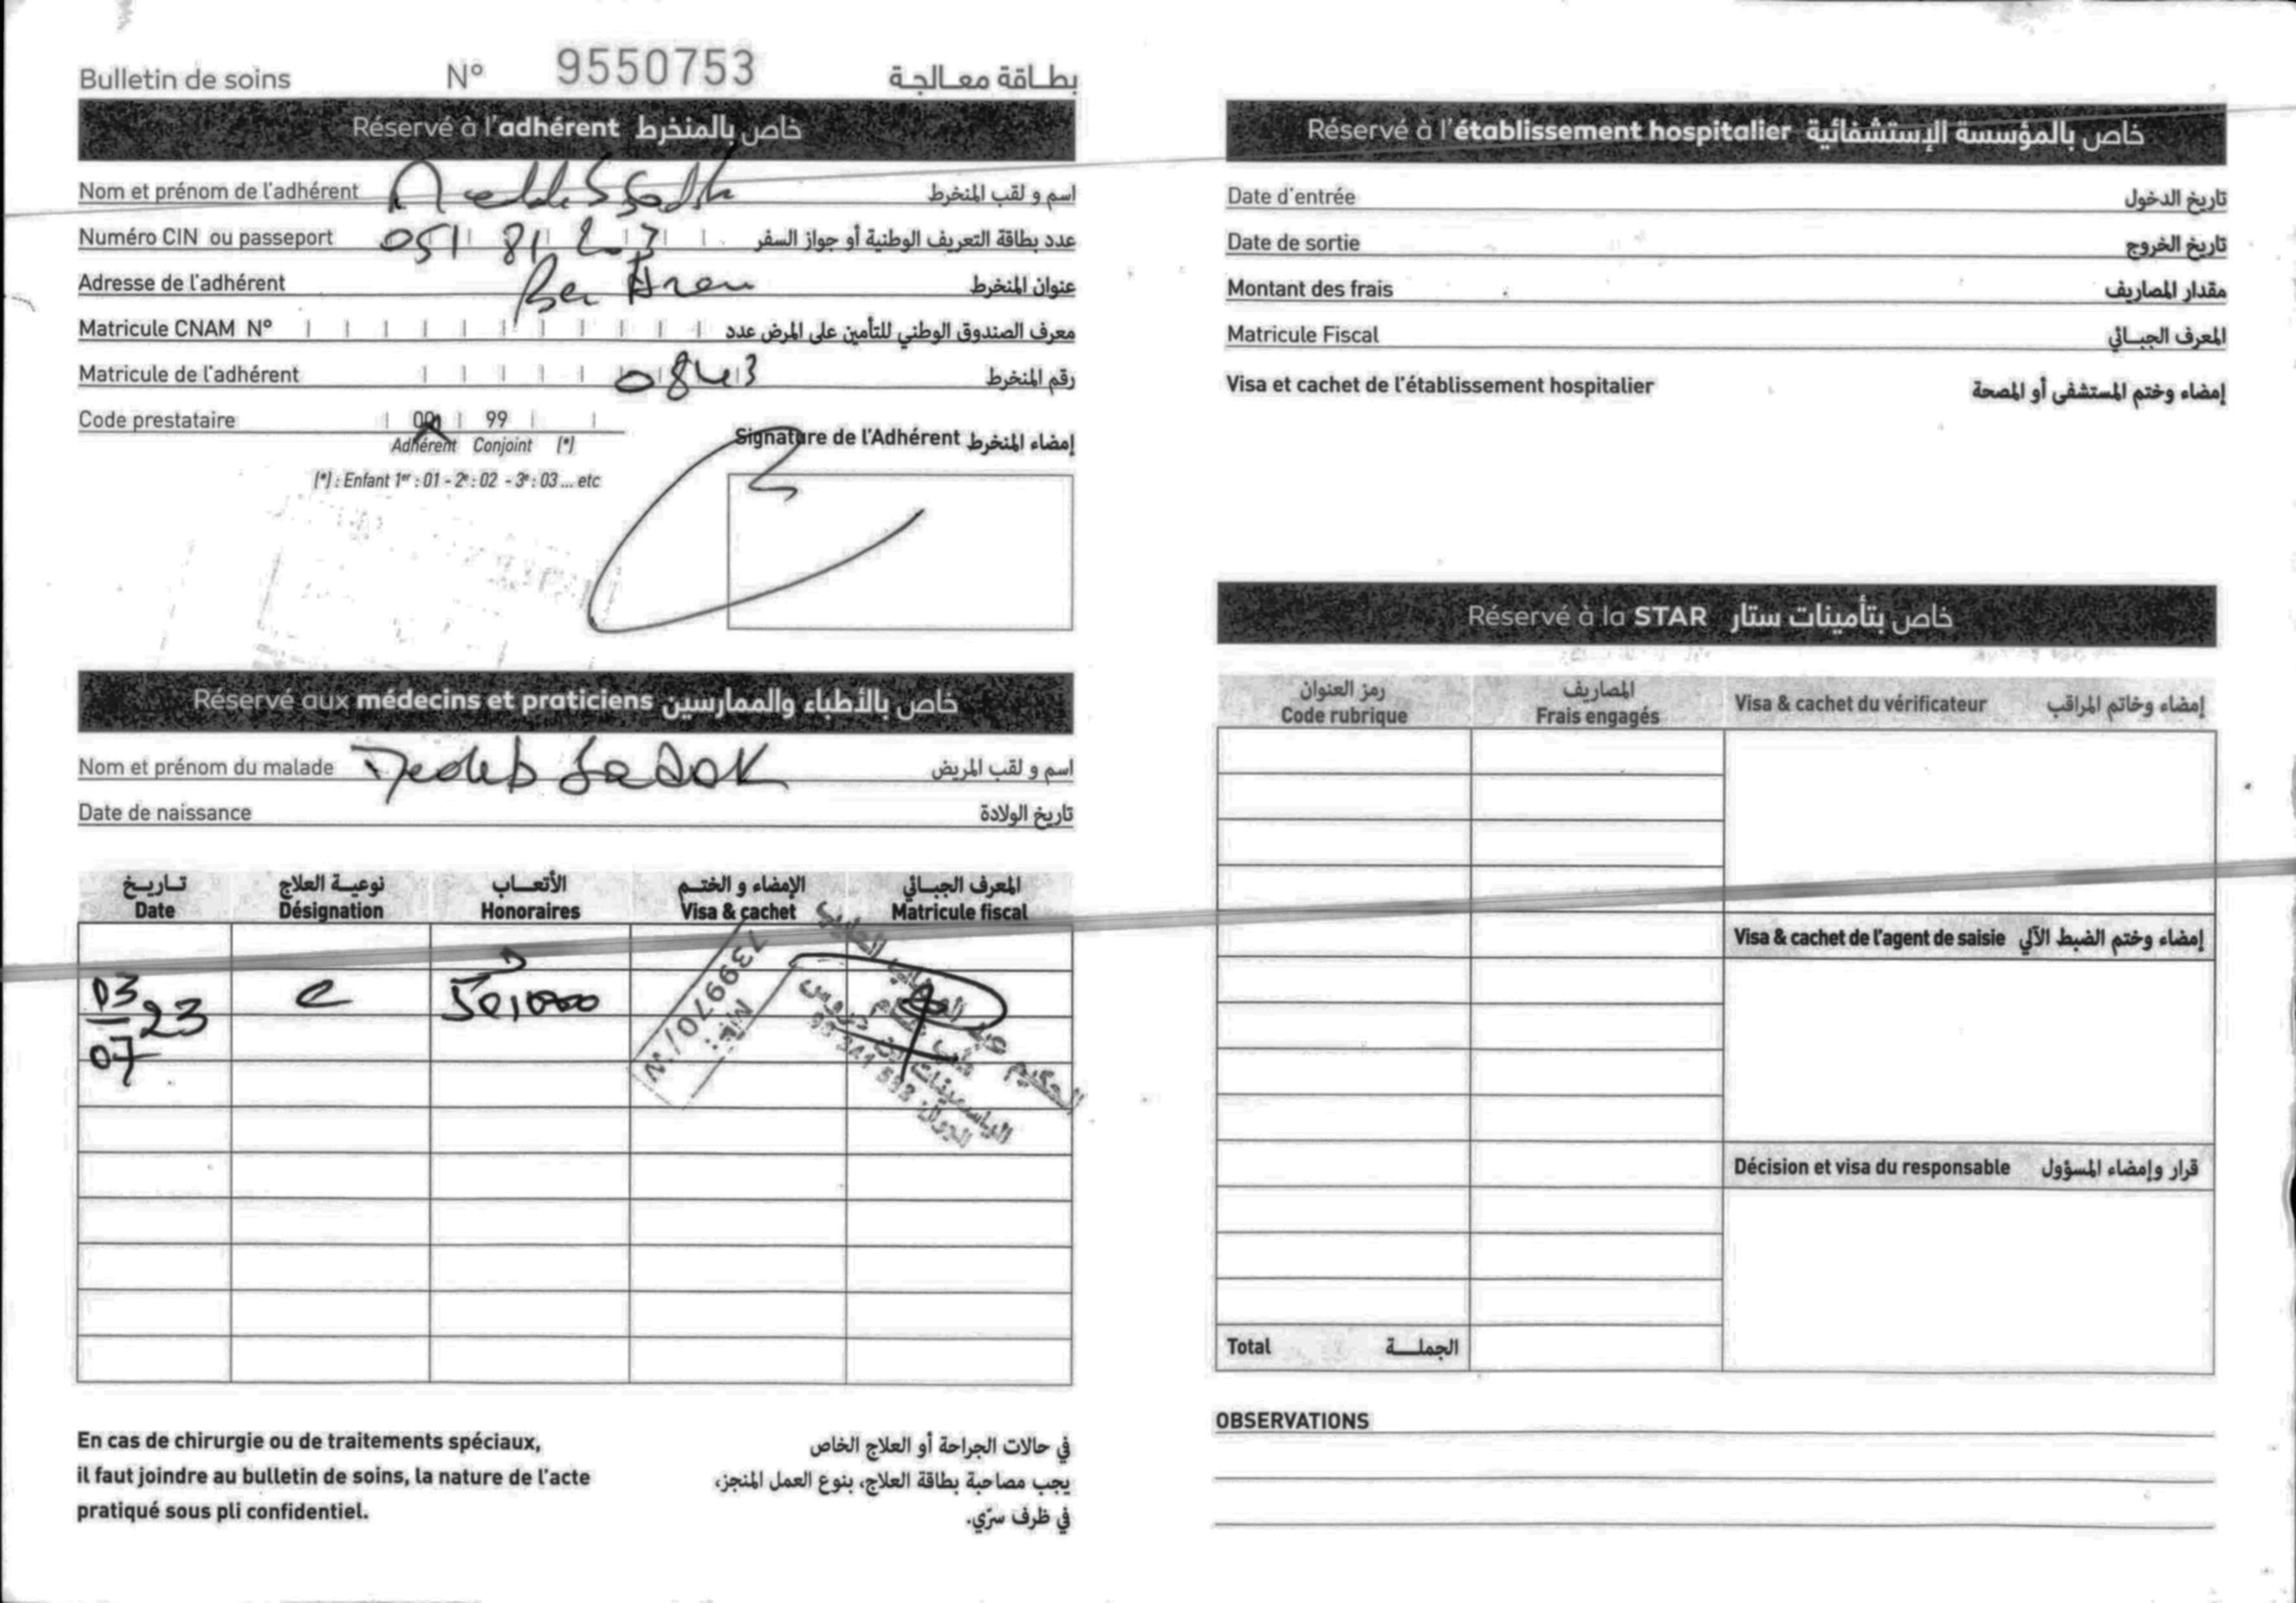 Bulletin de soins N° 9550753 بطاقة معالجة
Réservé à l'adhérent خاص بالمنخرط
Nom et prénom de l'adhérent اسم و لقب المنخرط
Numéro CIN ou passeport 051 81 203 عدد بطاقة التعريف الوطنية أو جواز السفر
Adresse de l'adhérent Ben Arou عنوان المنخرط
Matricule CNAM N° معرف الصندوق الوطني للتأمين على المرض عدد
Matricule de l'adhérent 0843 رقم المنخرط
Code prestataire 00 99
Adhérent Conjoint (*)
Signature de l'Adhérent إمضاء المنخرط
(*) : Enfant 1er : 01 - 2e : 02 - 3e : 03 ... etc
Réservé aux médecins et praticiens خاص بالأطباء والممارسين
Nom et prénom du malade اسم و لقب المريض
Date de naissance تاريخ الولادة
تاريخ نوعية العلاج الأتعاب الإمضاء و الختم المعرف الجبائي
Date Désignation Honoraires Visa & cachet Matricule fiscal
03 07 23 c 50,000
739970/
الحكيم
الياسمينات
الجوال: 98 341 593
En cas de chirurgie ou de traitements spéciaux,
il faut joindre au bulletin de soins, la nature de l'acte
pratiqué sous pli confidentiel.
في حالات الجراحة أو العلاج الخاص
يجب مصاحبة بطاقة العلاج، بنوع العمل المنجز،
في ظرف سرّي.
Réservé à l'établissement hospitalier خاص بالمؤسسة الإستشفائية
Date d'entrée تاريخ الدخول
Date de sortie تاريخ الخروج
Montant des frais مقدار المصاريف
Matricule Fiscal المعرف الجبائي
Visa et cachet de l'établissement hospitalier إمضاء وختم المستشفى أو المصحة
Réservé à la STAR خاص بتأمينات ستار
رمز العنوان المصاريف
Code rubrique Frais engagés Visa & cachet du vérificateur إمضاء وخاتم المراقب
Visa & cachet de l'agent de saisie إمضاء وختم الضبط الآلي
Décision et visa du responsable قرار وإمضاء المسؤول
Total الجملة
OBSERVATIONS